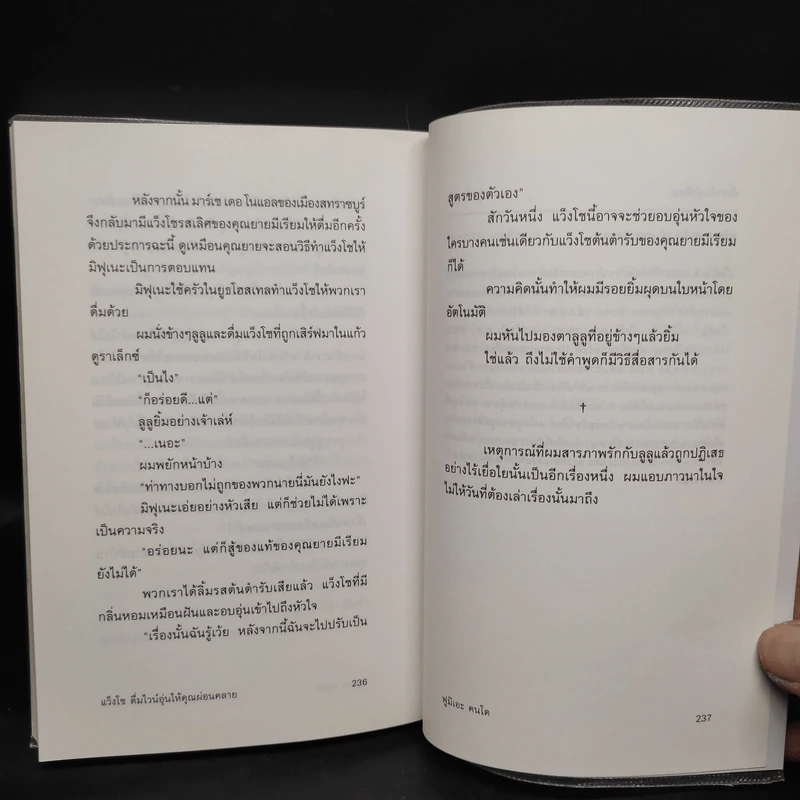 หลังจากนั้น มาร์เช เดอ โนแอลของเมืองสทราซบูร์
จึงกลับมามีแว็งโชรสเลิศของคุณยายมีเรียมให้ดื่มอีกครั้ง
ด้วยประการฉะนี้ ดูเหมือนคุณยายจะสอนวิธีทำแว็งโชให้
มิฟุเนะเป็นการตอบแทน
มิฟุเนะใช้ครัวในยูธโฮสเทลทำแว็งโชให้พวกเรา
ดื่มด้วย
ผมนั่งข้างๆลูลูและดื่มแว็งโชที่ถูกเสิร์ฟมาในแก้ว
ดูราเล็กซ์
“เป็นไง”
“ก็อร่อยดี...แต่”
ลูลูยิ้มอย่างเจ้าเล่ห์
“...เนอะ”
ผมพยักหน้าบ้าง
“ท่าทางบอกไม่ถูกของพวกนายนี่มันยังไงฟะ”
มิฟุเนะเอ่ยอย่างหัวเสีย แต่ก็ช่วยไม่ได้เพราะ
เป็นความจริง
“อร่อยนะ แต่ก็สู้ของแท้ของคุณยายมีเรียม
ยังไม่ได้”
พวกเราได้ลิ้มรสต้นตำรับเสียแล้ว แว็งโชที่มี
กลิ่นหอมเหมือนฝันและอบอุ่นเข้าไปถึงหัวใจ
“เรื่องนั้นฉันรู้เว้ย หลังจากนี้ฉันจะไปปรับเป็น
236
แว็งโช ดื่มไวน์อุ่นให้คุณผ่อนคลาย
สูตรของตัวเอง”
สักวันหนึ่ง แว็งโชนี้อาจจะช่วยอบอุ่นหัวใจของ
ใครบางคนเช่นเดียวกับแว็งโชต้นตำรับของคุณยายมีเรียม
ก็ได้
ความคิดนั้นทำให้ผมมีรอยยิ้มผุดบนใบหน้าโดย
อัตโนมัติ
ผมหันไปมองตาลูลูที่อยู่ข้างๆแล้วยิ้ม
ใช่แล้ว ถึงไม่ใช้คำพูดก็มีวิธีสื่อสารกันได้
†
เหตุการณ์ที่ผมสารภาพรักกับลูลูแล้วถูกปฏิเสธ
อย่างไร้เยื่อใยนั้นเป็นอีกเรื่องหนึ่ง ผมแอบภาวนาในใจ
ไม่ให้วันที่ต้องเล่าเรื่องนั้นมาถึง
ฟุมิเอะ คนโด
237